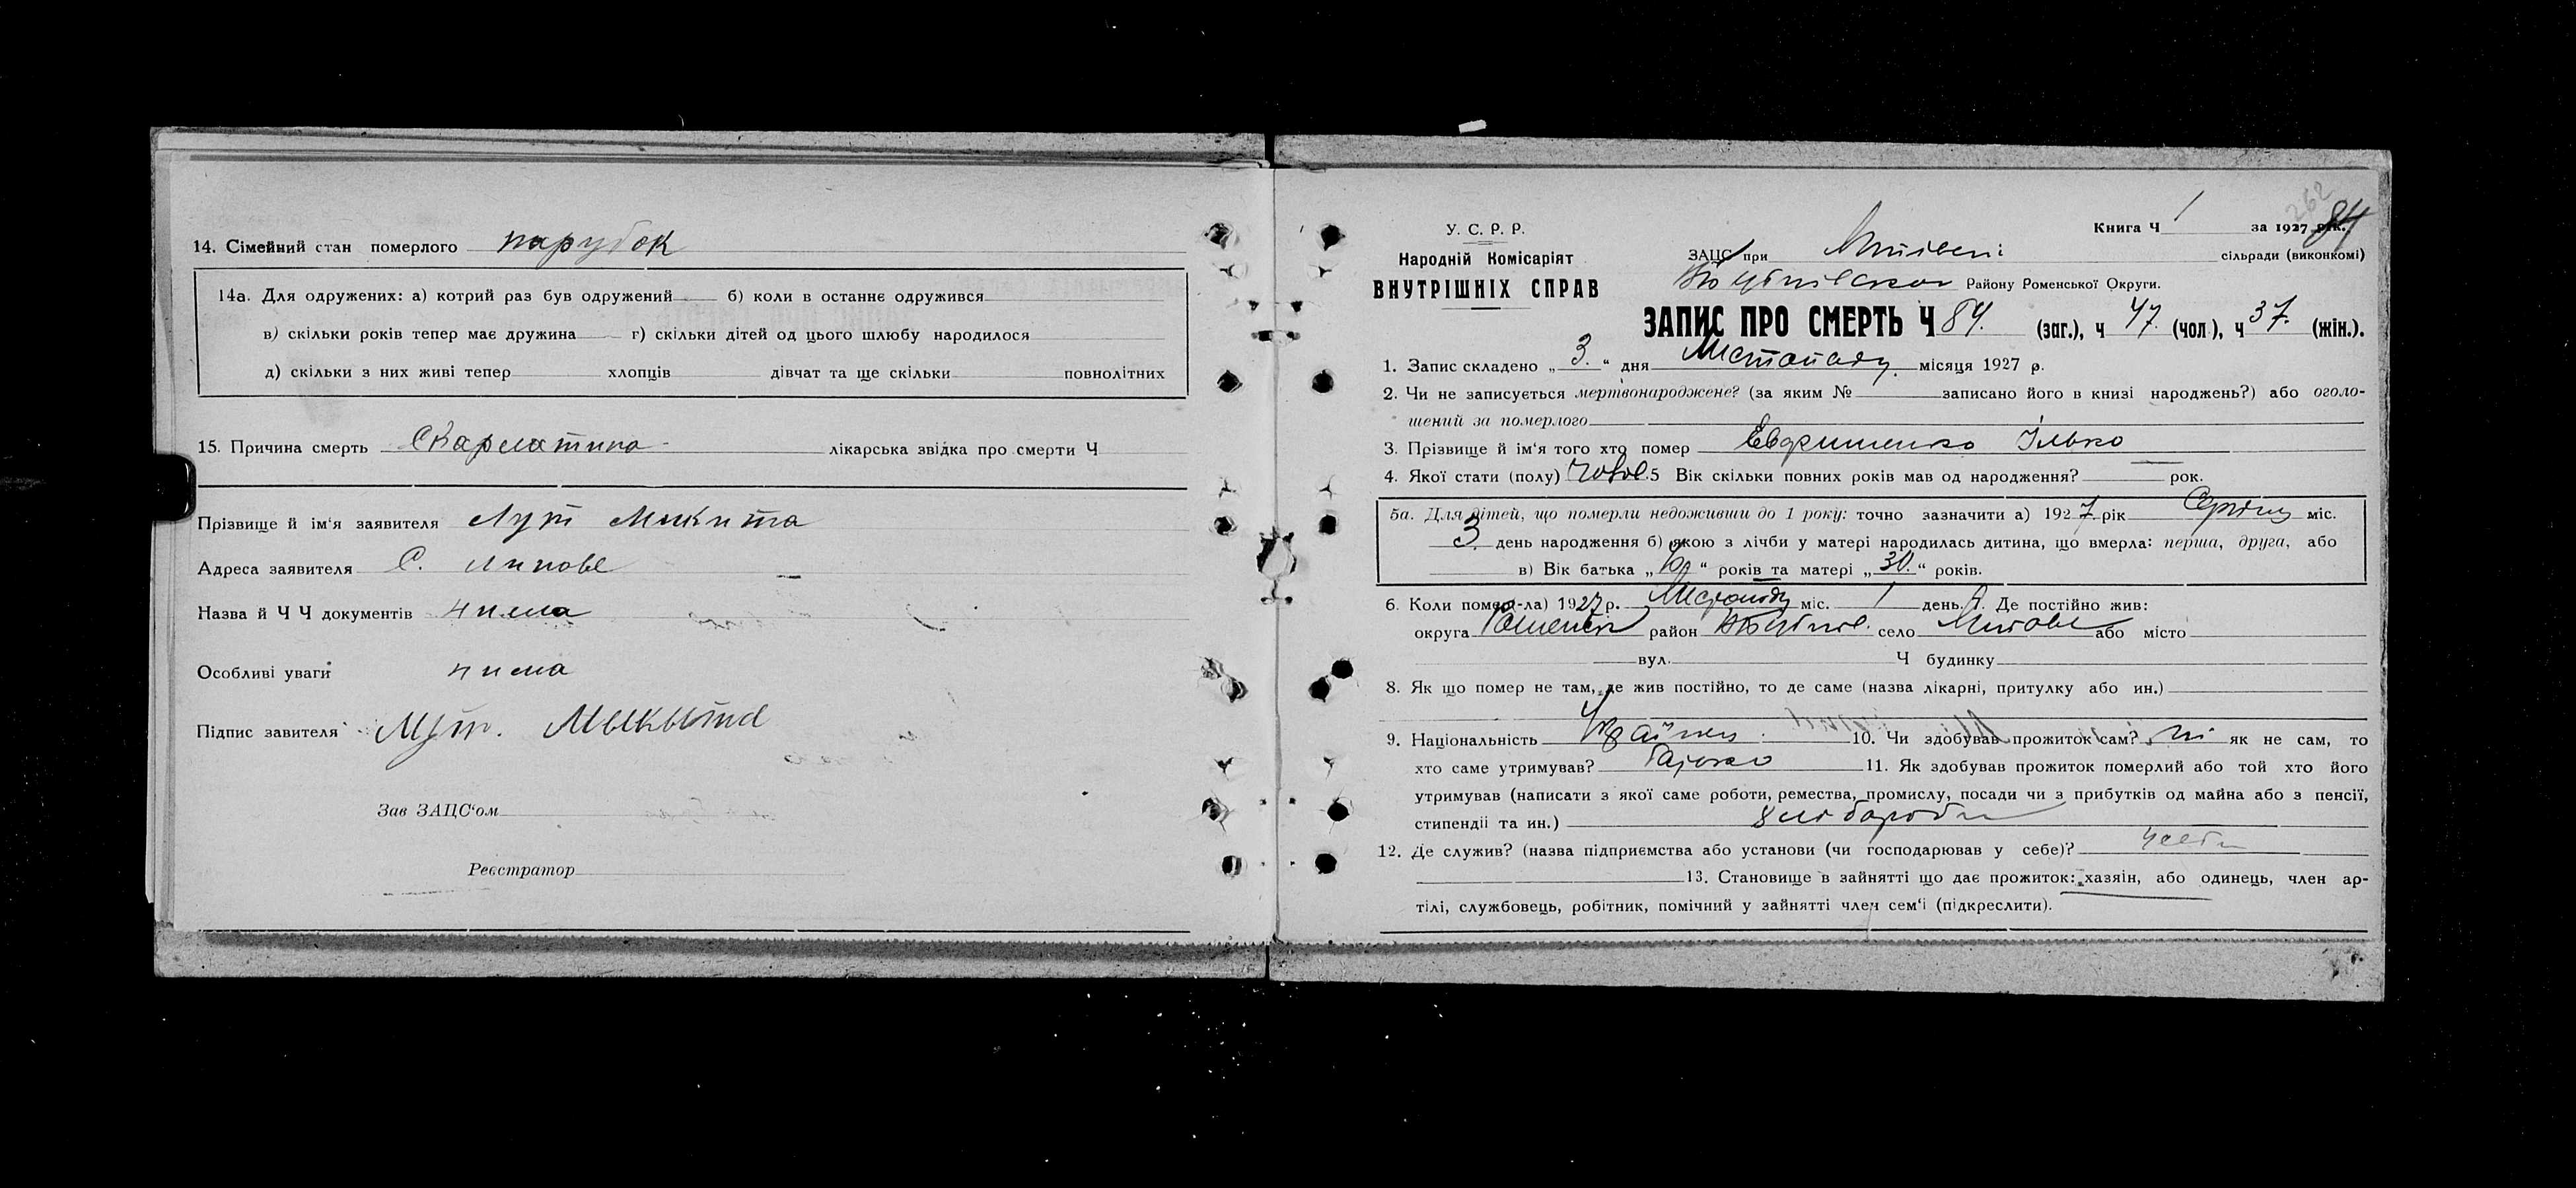 14. Сімейний стан померлого парубок
14а. Для одружених: а) котрий раз був одружений б) коли в останнє одружився
в) скільки років тепер має дружина г) скільки дітей од цього шлюбу народилося
д) скільки з них живі тепер хлопців дівчат та ще скільки повнолітних
15. Причина смерть Скарлатина лікарська звідка про смерти Ч
Прізвище й ім'я заявителя Лут Микита
Адреса заявителя С. Липове
Назва й Ч Ч документів нима
Особливі уваги нима
Підпис завителя Микыта
Зав ЗАЦС'ом
Реєстратор
262
84
Книга Ч 1 за 1927 рік.
У. С. Р. Р.
Народній Комісаріят
ВНУТРІШНІХ СПРАВ
ЗАЦС при сільради (виконкомі)
Району Роменської Округи.
ЗАПИС ПРО СМЕРТЬ Ч 84. (заг.), ч 47. (чол.), ч 37. (жін.).
1. Запис складено „ 3. “ дня Листопаду місяця 1927 р.
2. Чи не записується мертвонароджене? (за яким № записано його в книзі народжень?) або оголо-
шений за померлого
3. Прізвище й ім'я того хто помер Ілько
4. Якої стати (полу) Чолов. 5 Вік скільки повних років мав од народження? рок.
5а. Для дітей, що померли недоживши до 1 року: точно зазначити а) 1927 рік Серпня міс.
3. день народження б) якою з лічби у матері народилась дитина, що вмерла: перша, друга, або
в) Вік батька „ “ років та матері „ 30. “ років.
6. Коли помер(-ла) 1927 р. міс. 1 день. 7. Де постійно жив:
округа район село Липове або місто
вул. Ч будинку
8. Як що помер не там, де жив постійно, то де саме (назва лікарні, притулку або ин.)
9. Національність 10. Чи здобував прожиток сам? ні як не сам, то
хто саме утримував? Батько 11. Як здобував прожиток померлий або той хто його
утримував (написати з якої саме роботи, ремества, промислу, посади чи з прибутків од майна або з пенсії,
стипендії та ин.)
12. Де служив? (назва підприємства або установи (чи господарював у себе)? у себе
13. Становище в зайнятті що дає прожиток: хазяін, або одинець, член ар-
тілі, службовець, робітник, помічний у зайнятті член сем'і (підкреслити).